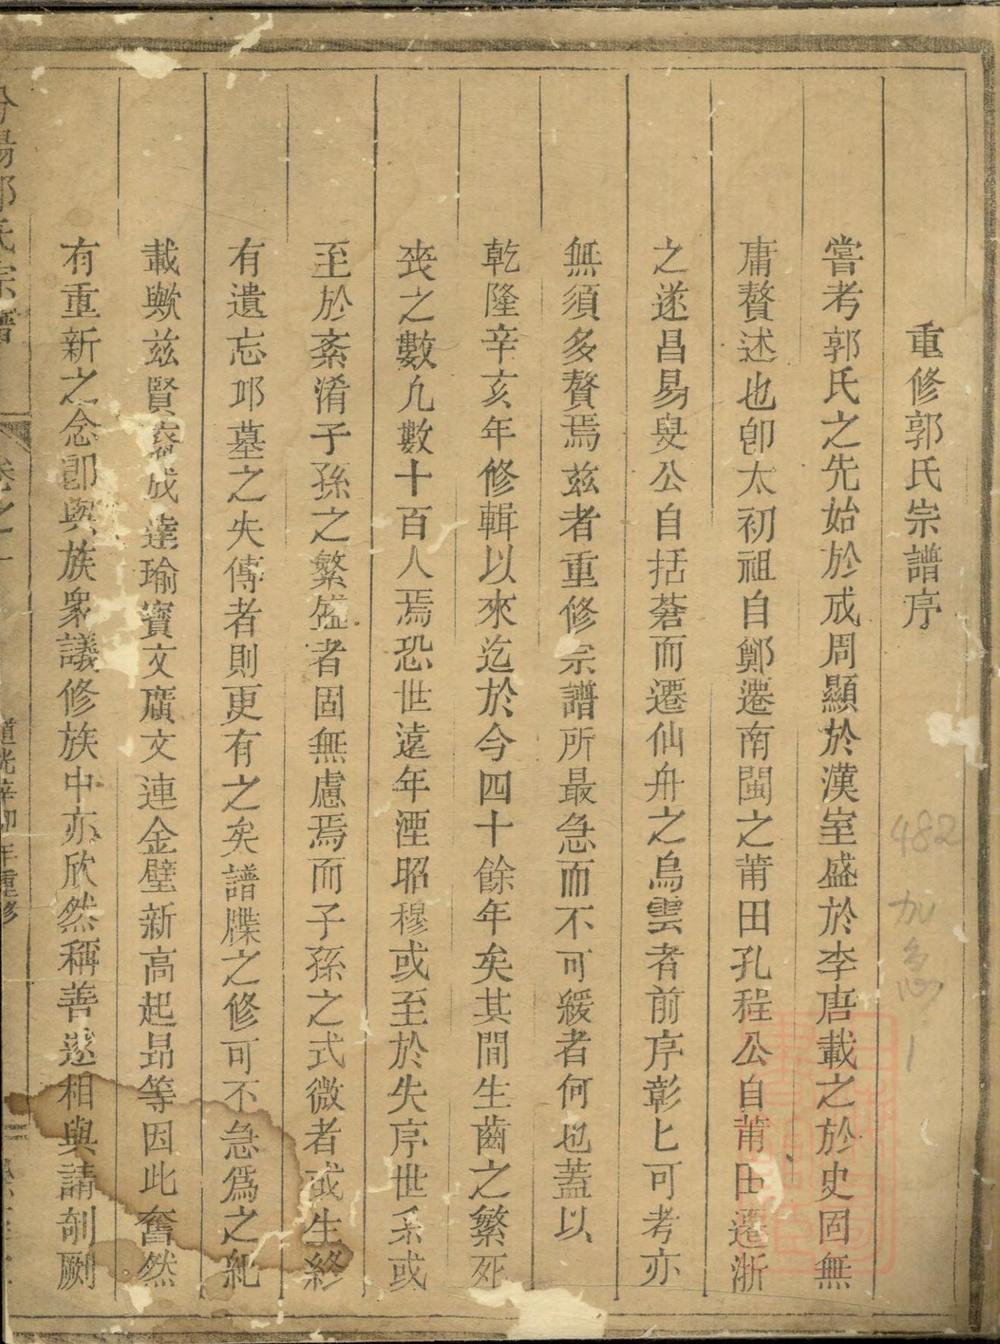 重修郭氏宗譜序
嘗考郭氏之先始於成周顯於漢室盛於李唐載之於史固無
庸贅述也卽太初祖自鄭遷南閩之莆田孔程公自莆田遷浙
之遂昌易叟公自括蒼而遷仙舟之烏雲者前序彰匕可考亦
無須多贅焉兹者重修宗譜所最急而不可緩者何也蓋以
乾隆辛亥年修輯以來迄於今四十餘年矣其間生齒之繁死
喪之數凢數十百人焉恐世遠年湮昭穆或至於失序世系或
至於紊淆子孫之繁盛者固無慮焉而子孫之式微者或生終
有遺忘邱墓之失傳者則更有之矣譜牒之修可不急爲之紀
載歟兹賢裔成達瑜寶文廣文連金璧新高起昻等因此奮然
有重新之念卽與族衆議修族中亦欣然稱善遂相與請剞劂
汾陽郭氏宗譜
卷之一
道光辛卯年重修
482
加
1